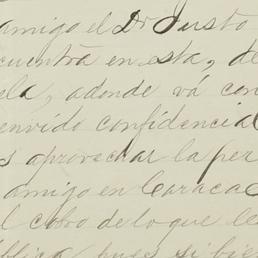 amigo el Dr Justo
cuentra en esta, de
ela, adonde vá con
envido confidencial
s aprovechar la per
amigo en Caracas
l cobro de lo que le
ública, pues si bie